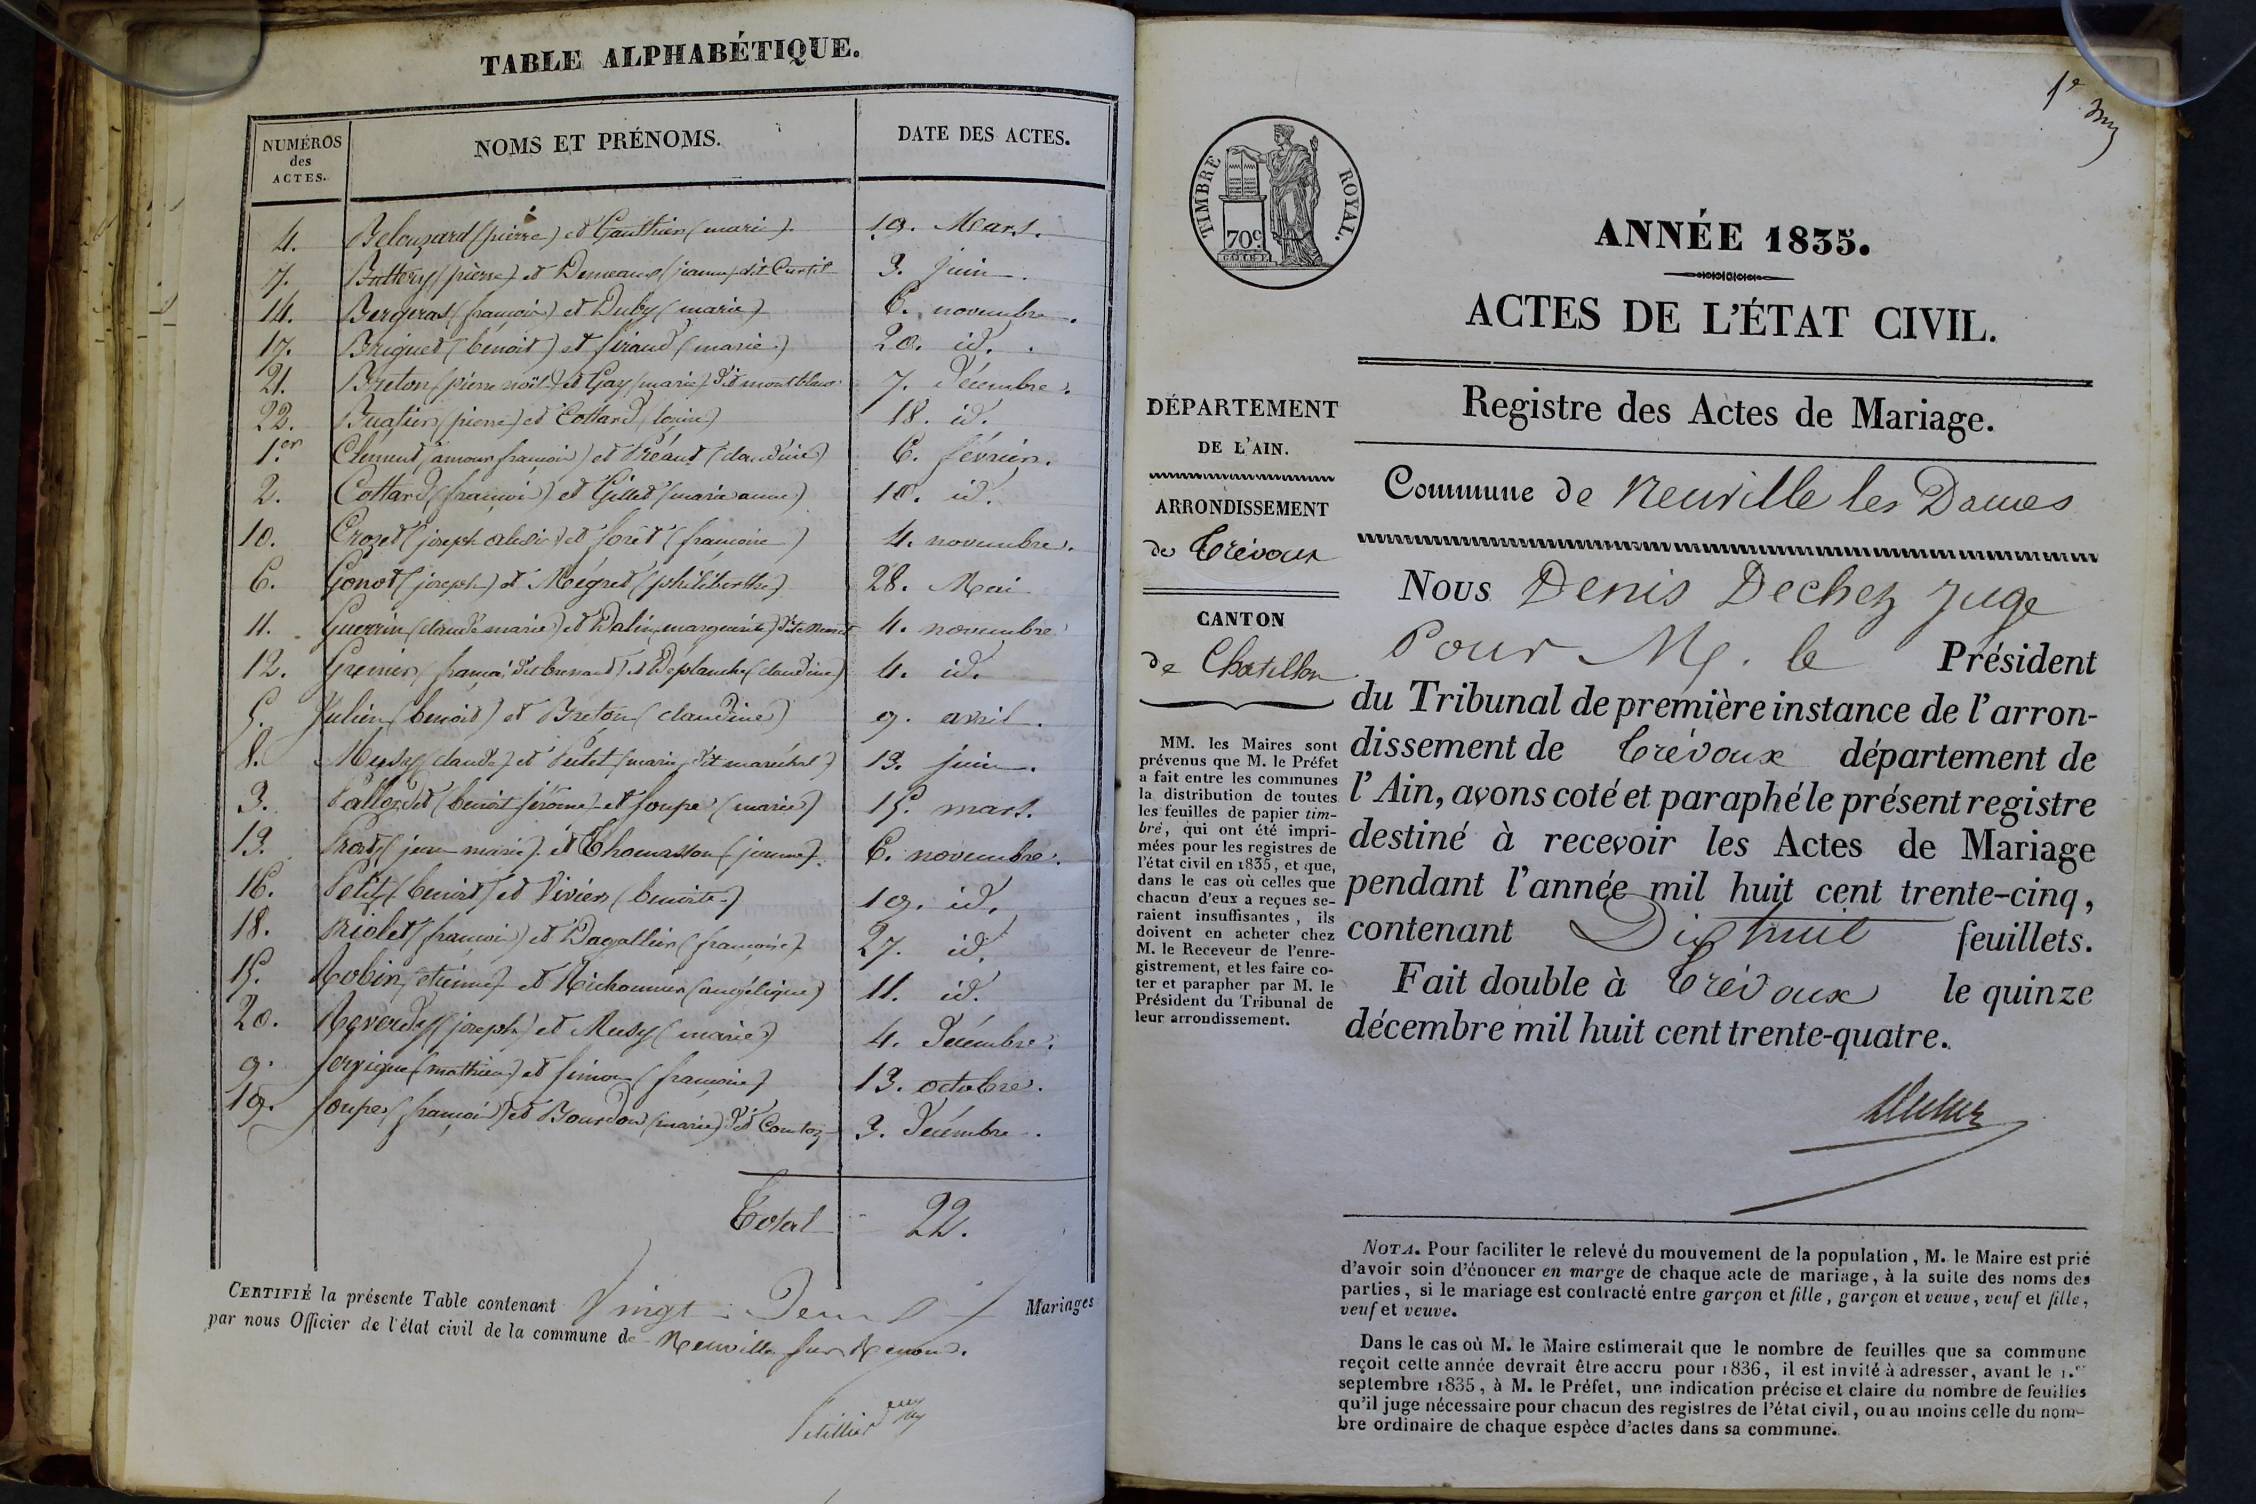 TABLE ALPHABÉTIQUE.
NUMÉROS des ACTES. NOMS ET PRÉNOMS. DATE DES ACTES.
4. Belouzard (pierre) et Gauthier (marie). 19. Mars.
7. (pierre) et (jeanne) dit Curtil 3. juin.
14. Bergeras (françois) et Duby (marie) 6. novembre.
17. Briguet (benoit) et firaud (marie) 20. id.
21. Breton (pierre noël) et Gay (marie) dit montblanc 7. Décembre.
22. Buatier (pierre) et Cottard 18. id.
1.er Clement (amour françois) et Préaud (claudine) 6. février.
2. Cottard (françois) et Gillet (marie anne) 10. id.
10. Crozet (joseph) et forêt (françoise) 4. novembre.
6. Gonot (joseph) et Mégret (philiberthe) 28. Mai
11. Guerrin (claude marie) et Dalin (marguerite) 4. novembre
12. Grenier (françois) et Deplanche (claudine) 4. id.
5. Julien (benoit) et Breton (claudine) 9. avril.
8. (claude) et Putet (marie) dit maréchal 13. juin.
3. (benoit jérôme) et soupe (marie) 15. mars.
13. Prost (jean marie) et Thomasson (jeanne). 6. novembre.
16. Petit (benoit) et Vivier (benoite) 19. id.
18. Riolet (françois) et Dagallier (françoise) 27. id.
15. Robin (etienne) et Michonnier (angélique) 11. id.
20. Reverdy (joseph) et Musy (marie) 4. Décembre.
9. servigne (mathieu) et simon (françoise) 13. octobre.
19. soupe (françois) et Bourdon (marie) dit Comtoz 3. Décembre.
Total 22.
CERTIFIÉ la présente Table contenant Vingt Deux Mariages
par nous Officier de l'état civil de la commune de Neuville sur Renom.
1.e
TIMBRE ROYAL.
70c
ANNÉE 1835.
ACTES DE L'ÉTAT CIVIL.
Registre des Actes de Mariage.
Commune de Neuville les Dames
DÉPARTEMENT
DE L'AIN.
ARRONDISSEMENT
de Trévoux
CANTON
de Chatillon
MM. les Maires sont
prévenus que M. le Préfet
a fait entre les communes
la distribution de toutes
les feuilles de papier tim-
bré, qui ont été impri-
mées pour les registres de
l'état civil en 1835, et que,
dans le cas où celles que
chacun d'eux a reçues se-
raient insuffisantes, ils
doivent en acheter chez
M. le Receveur de l'enre-
gistrement, et les faire co-
ter et parapher par M. le
Président du Tribunal de
leur arrondissement.
Nous Denis Dechez Juge
Pour M. le Président
du Tribunal de première instance de l'arron-
dissement de Trévoux département de
l'Ain, avons coté et paraphé le présent registre
destiné à recevoir les Actes de Mariage
pendant l'année mil huit cent trente-cinq,
contenant Dix huit feuillets.
Fait double à Trévoux le quinze
décembre mil huit cent trente-quatre.
NOTA. Pour faciliter le relevé du mouvement de la population, M. le Maire est prié
d'avoir soin d'énoncer en marge de chaque acte de mariage, à la suite des noms des
parties, si le mariage est contracté entre garçon et fille, garçon et veuve, veuf et fille,
veuf et veuve.
Dans le cas où M. le Maire estimerait que le nombre de feuilles que sa commune
reçoit cette année devrait être accru pour 1836, il est invité à adresser, avant le 1.er
septembre 1835, à M. le Préfet, une indication précise et claire du nombre de feuilles
qu'il juge nécessaire pour chacun des registres de l'état civil, ou au moins celle du nom-
bre ordinaire de chaque espèce d'actes dans sa commune.